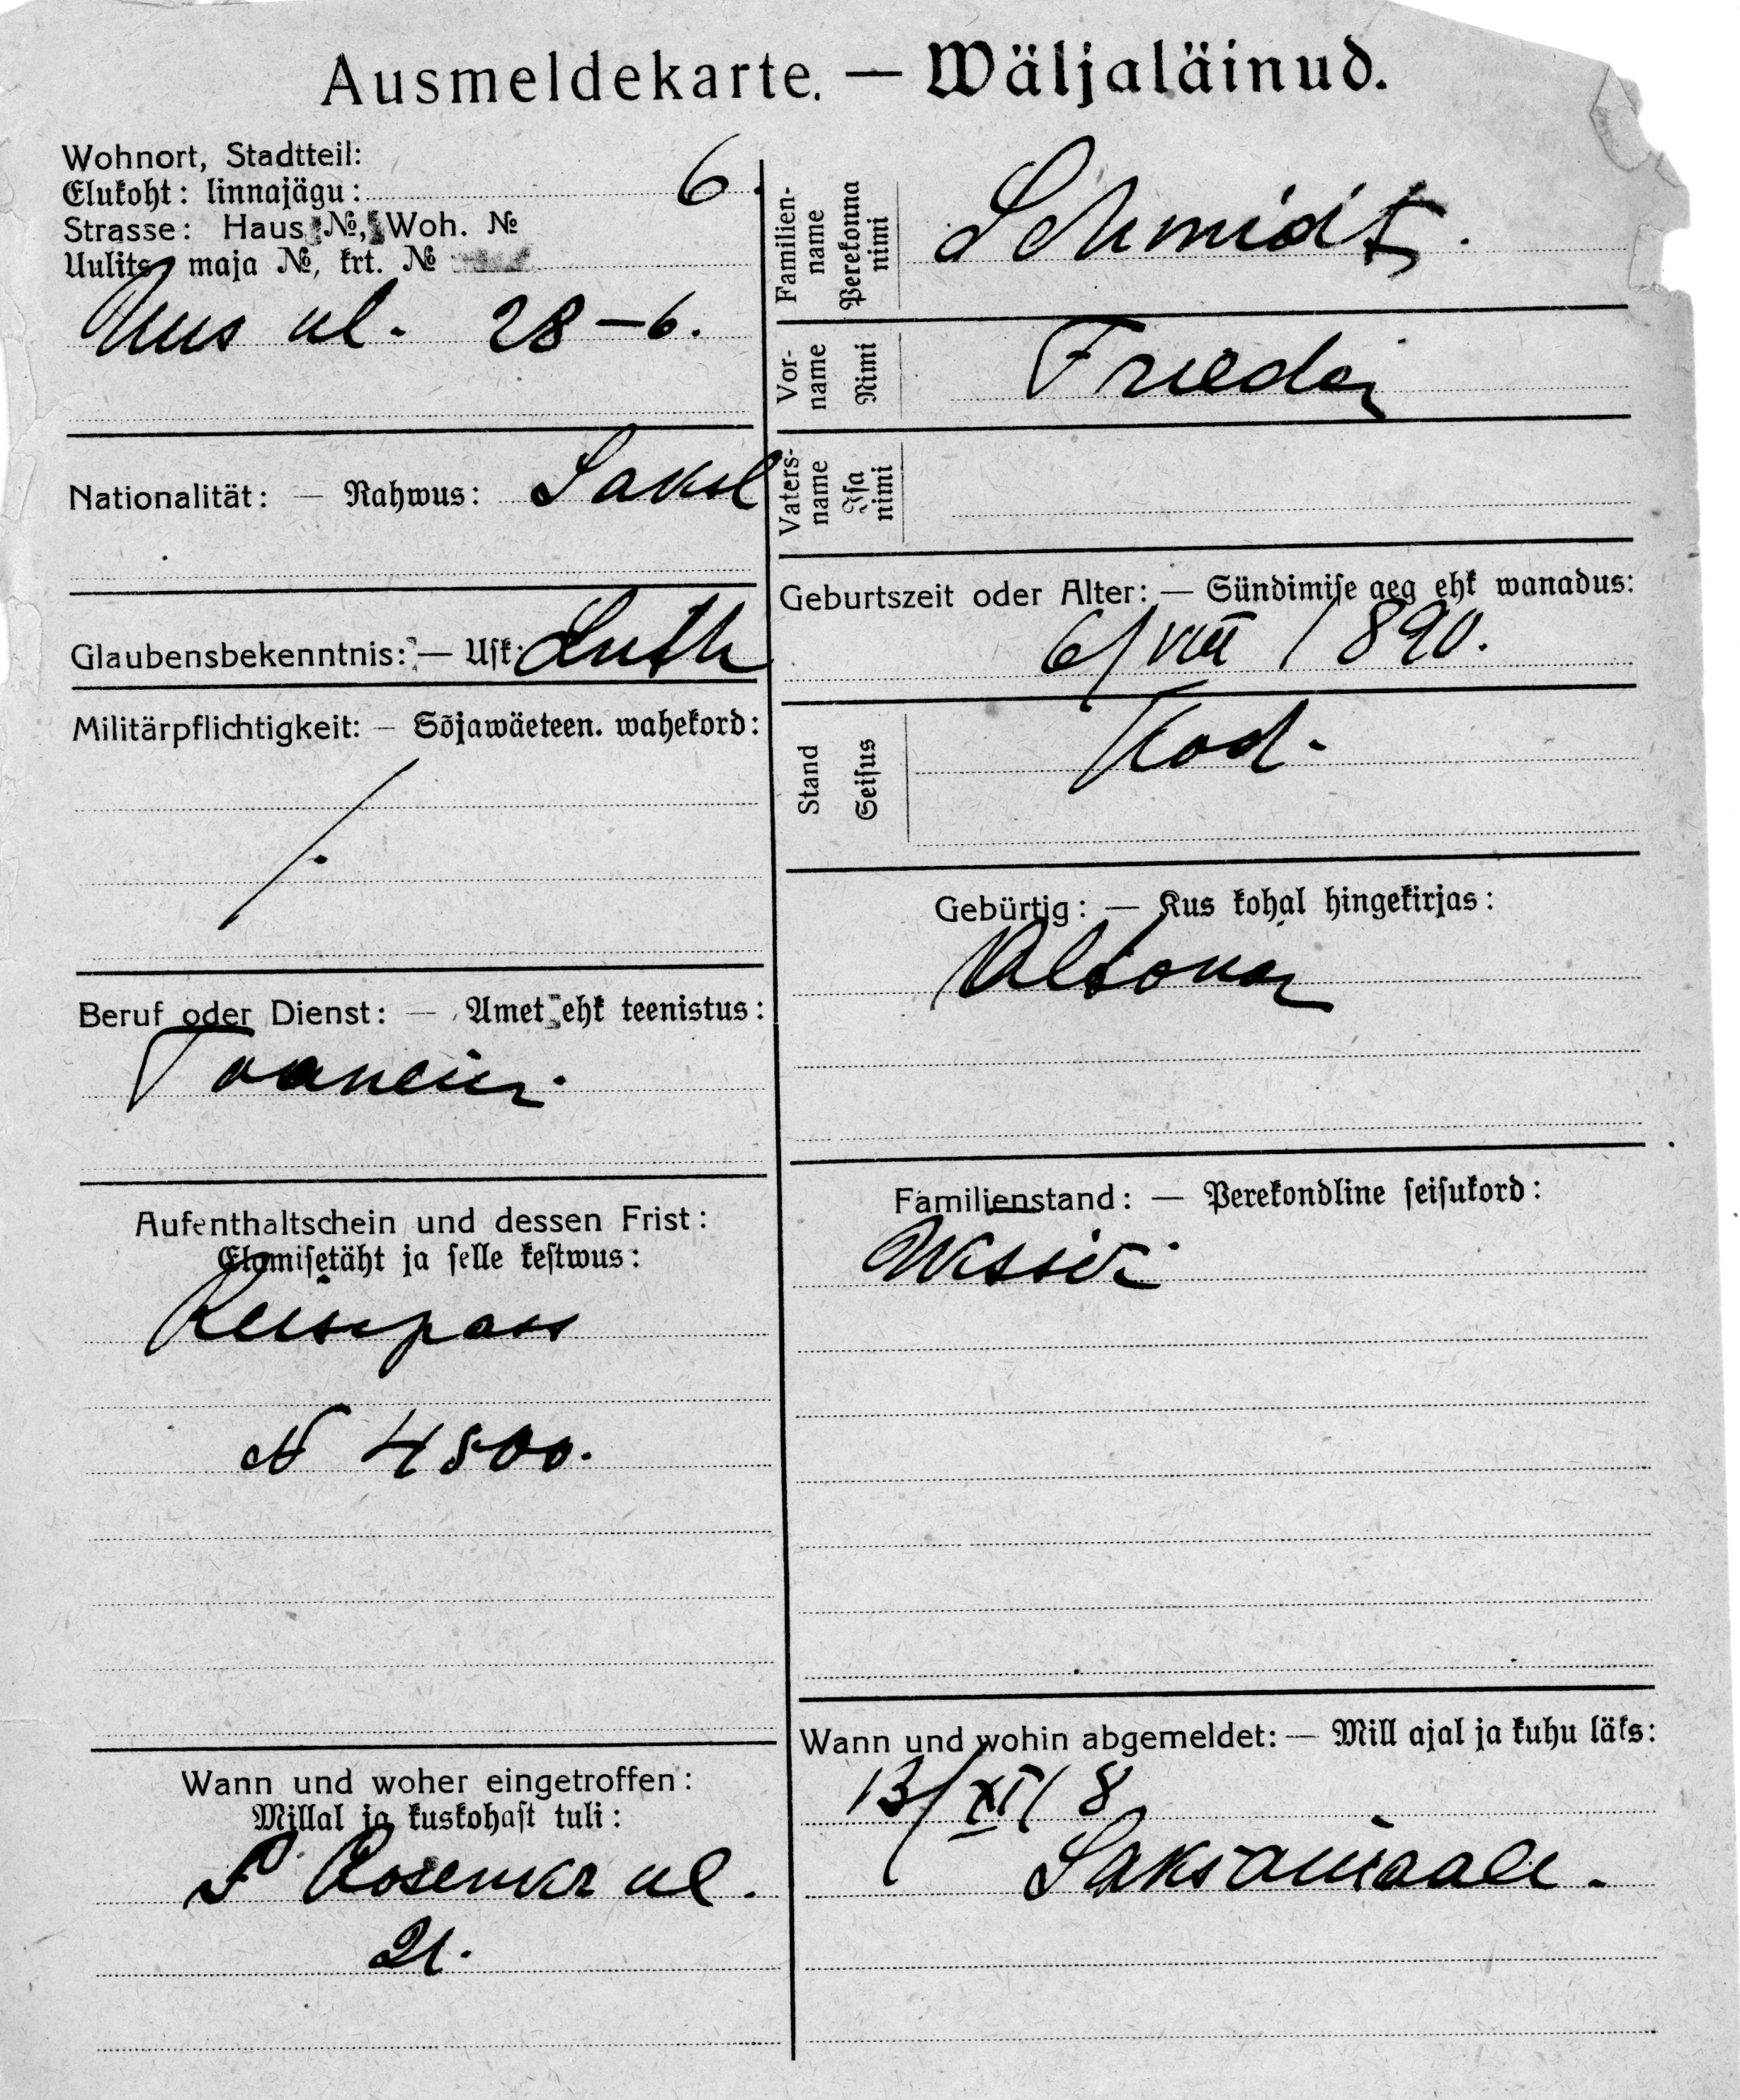 Ausmeldekarte. — Wäljaläinud.
Wohnort, Stadtteil:
Elukoht: linnajägu: 6.
Strasse: Haus №, Woh. №
Uulits, maja №, krt. №
Uus ul. 28-6.
Nationalität: — Rahwus: Saksl
Glaubensbekenntnis: — Usk: Luth
Militärpflichtigkeit: — Sõjawäeteen. wahekord:
/.
Beruf oder Dienst: — Amet ehk teenistus:
Aufenthaltschein und dessen Frist:
Elamisetäht ja selle kestwus:
Reisepass
№ 4500.
Wann und woher eingetroffen:
Millal ja kuskohast tuli:
ul.
21.
Familien-name
Perekonna nimi
Schmidt.
Vor-name
Nimi
Frieda
Vaters-name
Isa nimi
Geburtszeit oder Alter: — Sündimise aeg ehk wanadus:
6/VIII 1890.
Stand
Seisus
Kod.
Gebürtig: — Kus kohal hingekirjas:
Altona
Familienstand: — Perekondline seisukord:
Wann und wohin abgemeldet: — Mill ajal ja kuhu läks:
13/XI/8
Saksamaale.